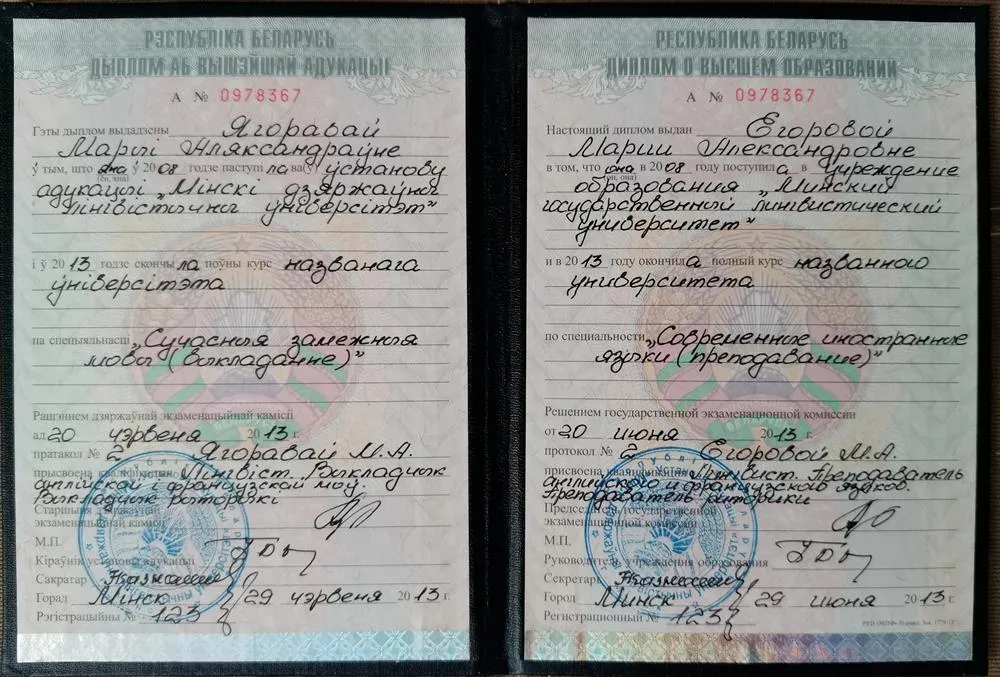 РЭСПУБЛІКА БЕЛАРУСЬ
ДЫПЛОМ АБ ВЫШЭЙШАЙ АДУКАЦЫІ
А № 0978367
Гэты дыплом выдадзены Ягоравай
Марыі Аляксандраўне
ў тым, што яна ў 2008 годзе паступіла ва(ў) ўстанову
(ён, яна)
адукацыі „Мінскі дзяржаўны
лінгвістычны ўніверсітэт"
і ў 2013 годзе скончыла поўны курс названага
ўніверсітэта
па спецыяльнасці „Сучасныя замежныя
мовы (выкладанне)"
Рашэннем дзяржаўнай экзаменацыйнай камісіі
ад 20 чэрвеня 2013 г.
пратакол № 2 Ягоравай М.А.
прысвоена кваліфікацыя Лінгвіст. Выкладчык
англійскай і французскай моў.
Выкладчык рыторыкі
Старшыня дзяржаўнай
экзаменацыйнай камісіі
М.П.
Кіраўнік установы адукацыі
Сакратар
Горад Мінск 29 чэрвеня 2013 г.
Рэгістрацыйны № 123
РЕСПУБЛИКА БЕЛАРУСЬ
ДИПЛОМ О ВЫСШЕМ ОБРАЗОВАНИИ
А № 0978367
Настоящий диплом выдан Егоровой
Марии Александровне
в том, что она в 2008 году поступила в учреждение
(он, она)
образования „Минский
государственный лингвистический
университет"
и в 2013 году окончила полный курс названного
университета
по специальности „Современные иностранные
языки (преподавание)"
Решением государственной экзаменационной комиссии
от 20 июня 2013 г.
протокол № 2 Егоровой М.А.
присвоена квалификация Лингвист. Преподаватель
английского и французского языков.
Преподаватель риторики
Председатель государственной
экзаменационной комиссии
М.П.
Руководитель учреждения образования
Секретарь
Город Минск 29 июня 2013 г.
Регистрационный № 123